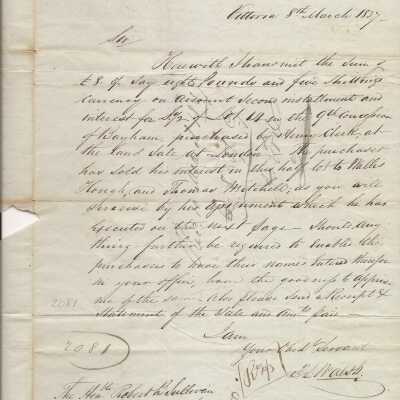 Vittoria 8th March 1837.
Sir
Herewith I transmit the Sum of
£8. 5/. Say eight Pounds and five Shillings
Currency on account Second instalment and
interest for ½ of Lot 14 in the 9th Concession
of Bayham, purchased by Henry Clerk, at
the land Sale at London The purchaser
has Sold his interest in this half lot to Walter
and Thomas Mitchell, as you will
perceive by his assignment which he has
Executed on the next page - Should any
thing further be required to enable the
purchasers to have their names entered therefor
in your office, have the goodness to apprise
me of the same. Also please Send a Receipt &
Statement of the Sale and amts paid -
I am
Your Obedt. Servant
2081
2081
The Honble Robert B. Sullivan